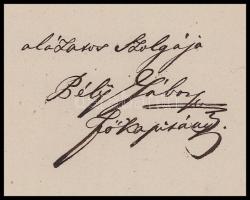 alázatos szolgája
Bély Gábor
főkapitány.